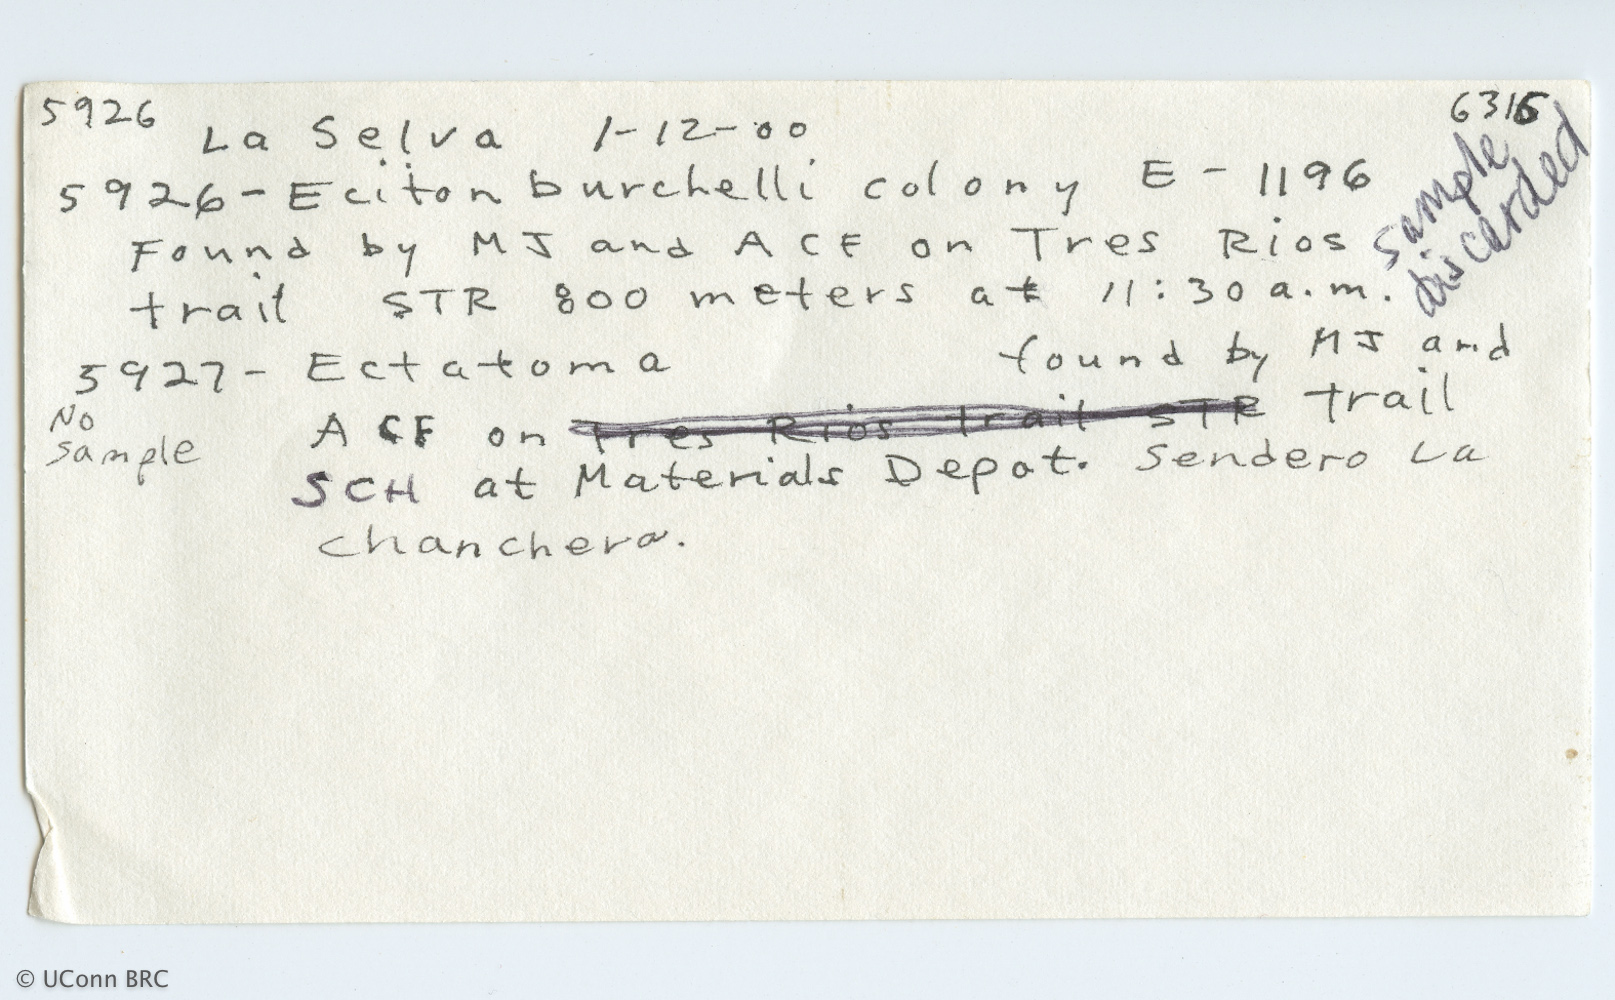 5926
6316
La Selva 1-12-00
sample
discarded
5926- Eciton burchelli colony E-1196
Found by MJ and ACF on Tres Rios
trail STR 800 meters at 11:30 a.m.
5927- Ectatoma found by MJ and
No
sample
ACF on Tres Rios trail STR trail
SCH at Materials Depot. Sendero La
Chanchera.
© UConn BRC